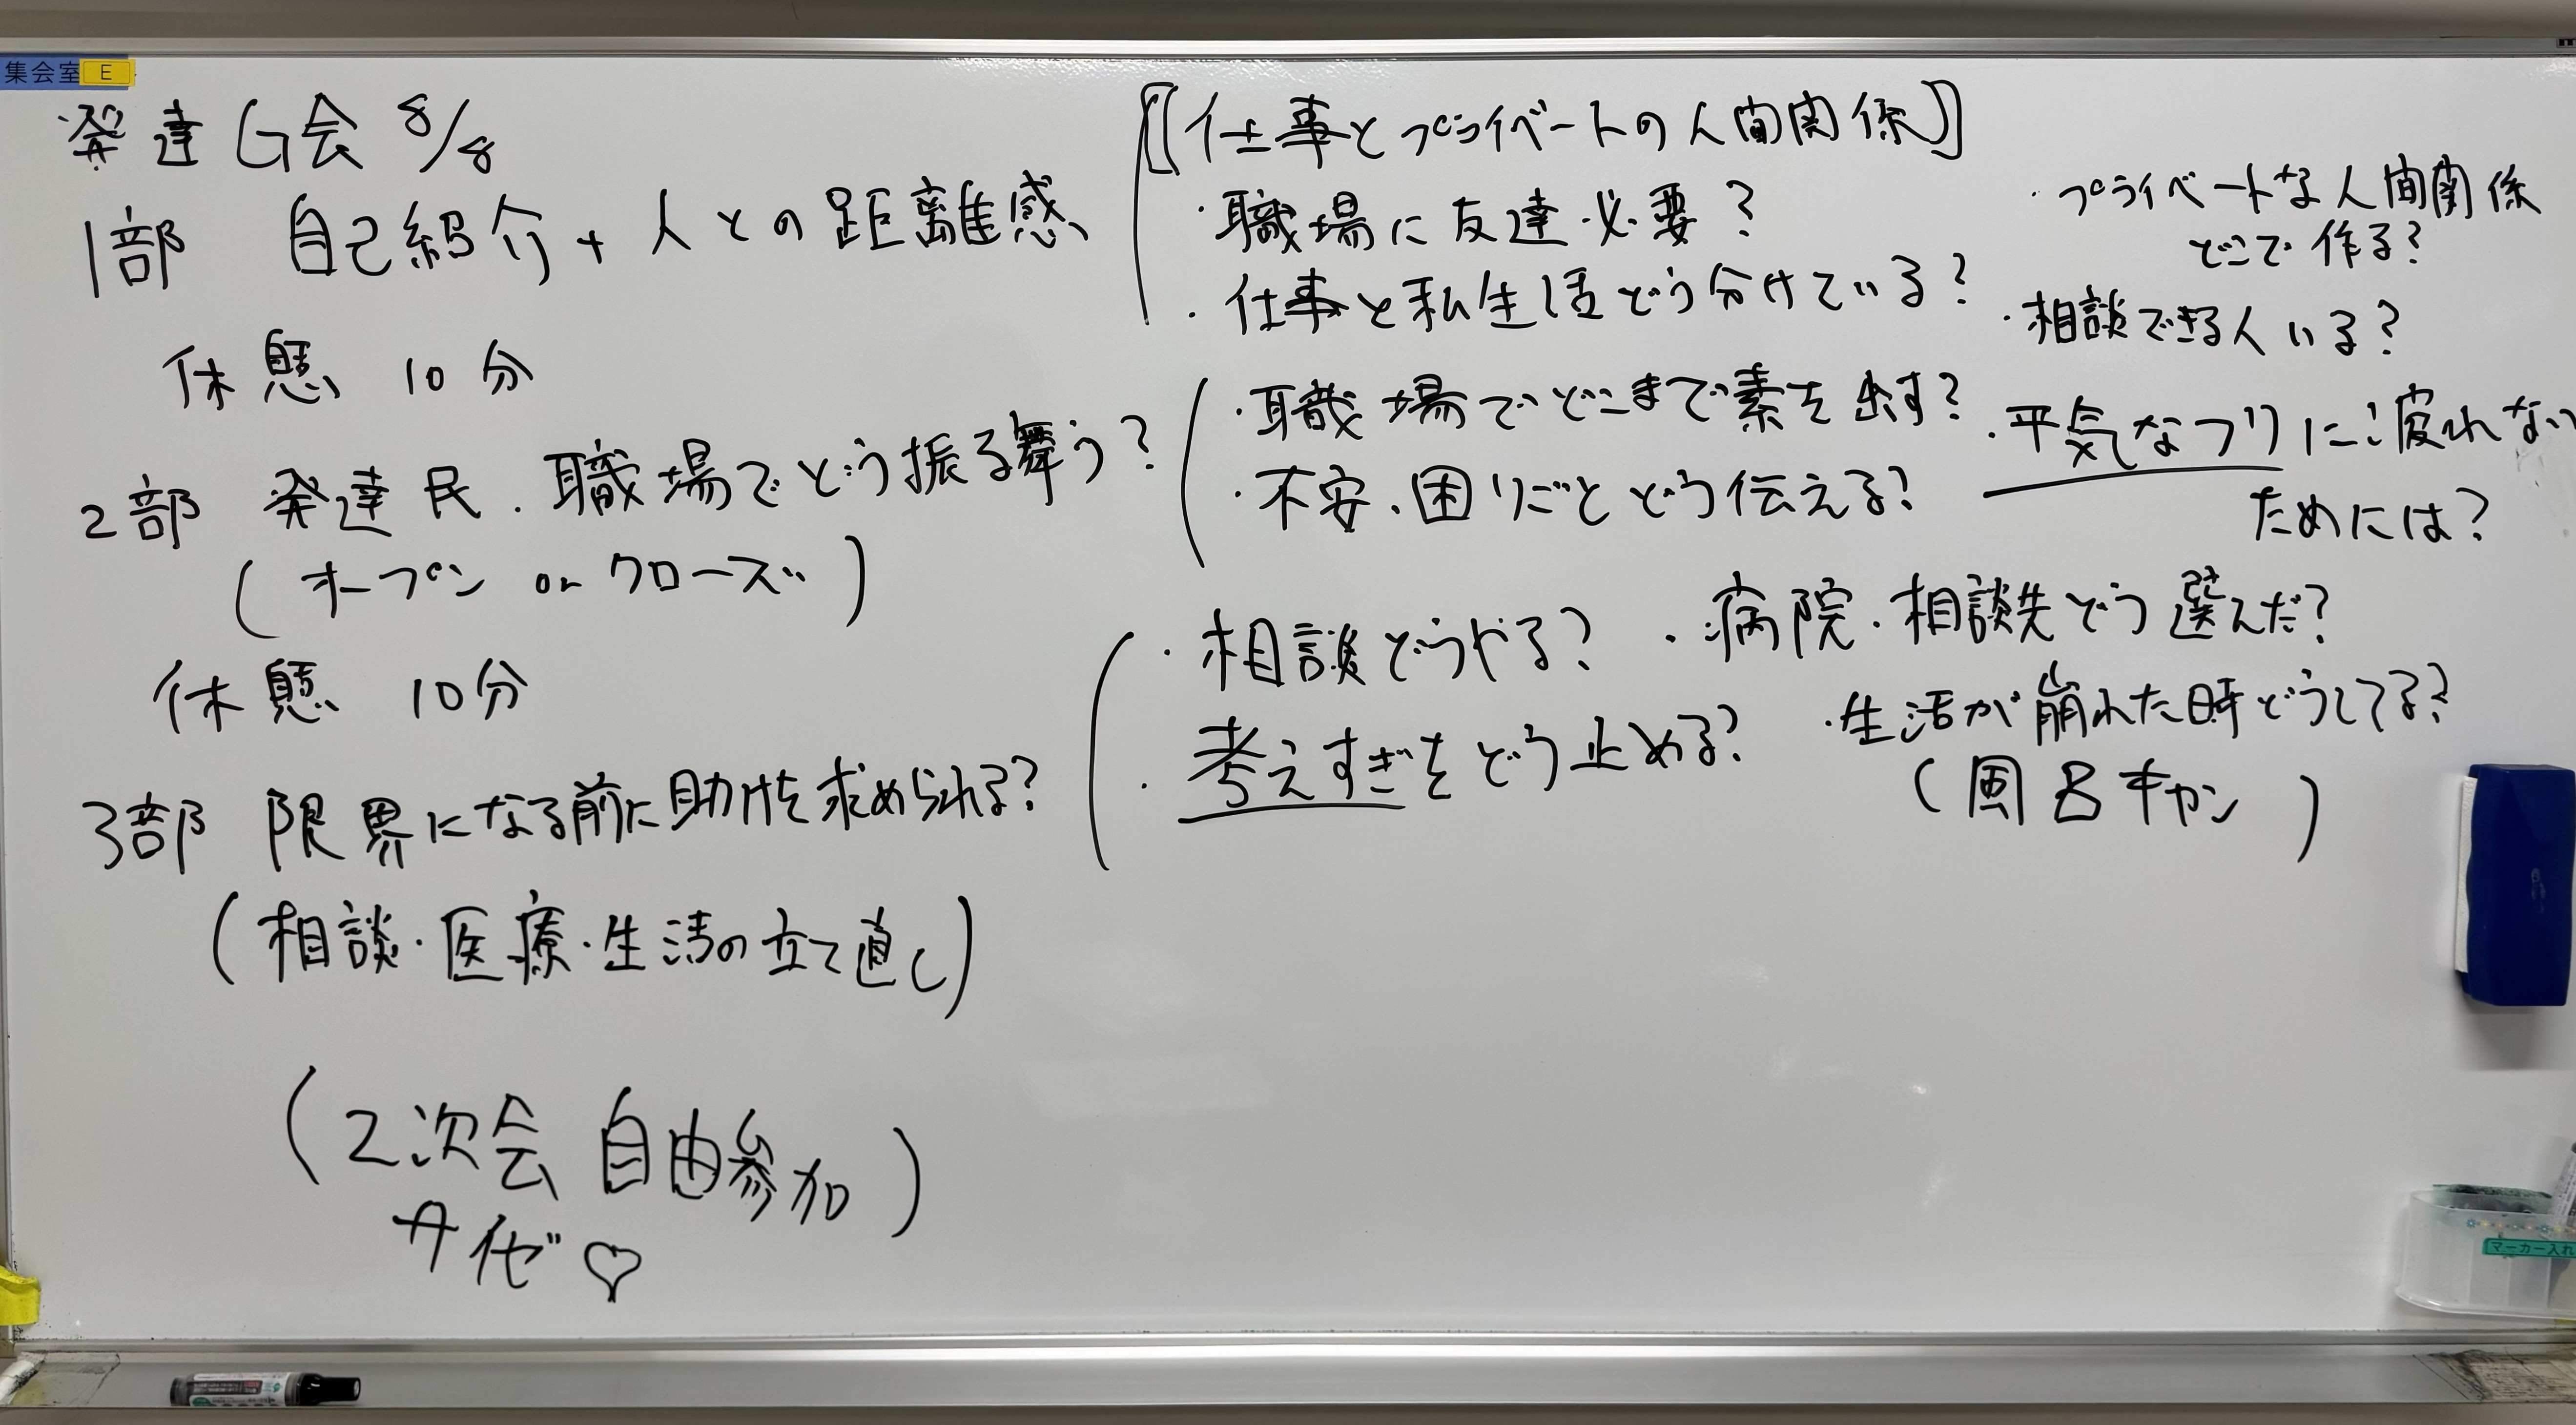 集会室 E
発達G会 8/8
1部 自己紹介+人との距離感
休憩 10分
2部 発達民、職場でどう振る舞う?
(オープン or クローズ)
休憩 10分
3部 限界になる前に助けを求められる?
(相談・医療・生活の立て直し)
(2次会 自由参加)
サイゼ♡
【仕事とプライベートの人間関係】
・職場に友達必要?
・仕事と私生活どう分けている?
・プライベートな人間関係
どこで作る?
・相談できる人いる?
・職場でどこまで素を出す?
・不安、困りごとどう伝える?
・平気なフリに疲れない
ためには?
・相談どうやる?
・病院・相談先どう選んだ?
・考えすぎをどう止める?
・生活が崩れた時どうしてる?
(風呂キャン)
マーカー入れ